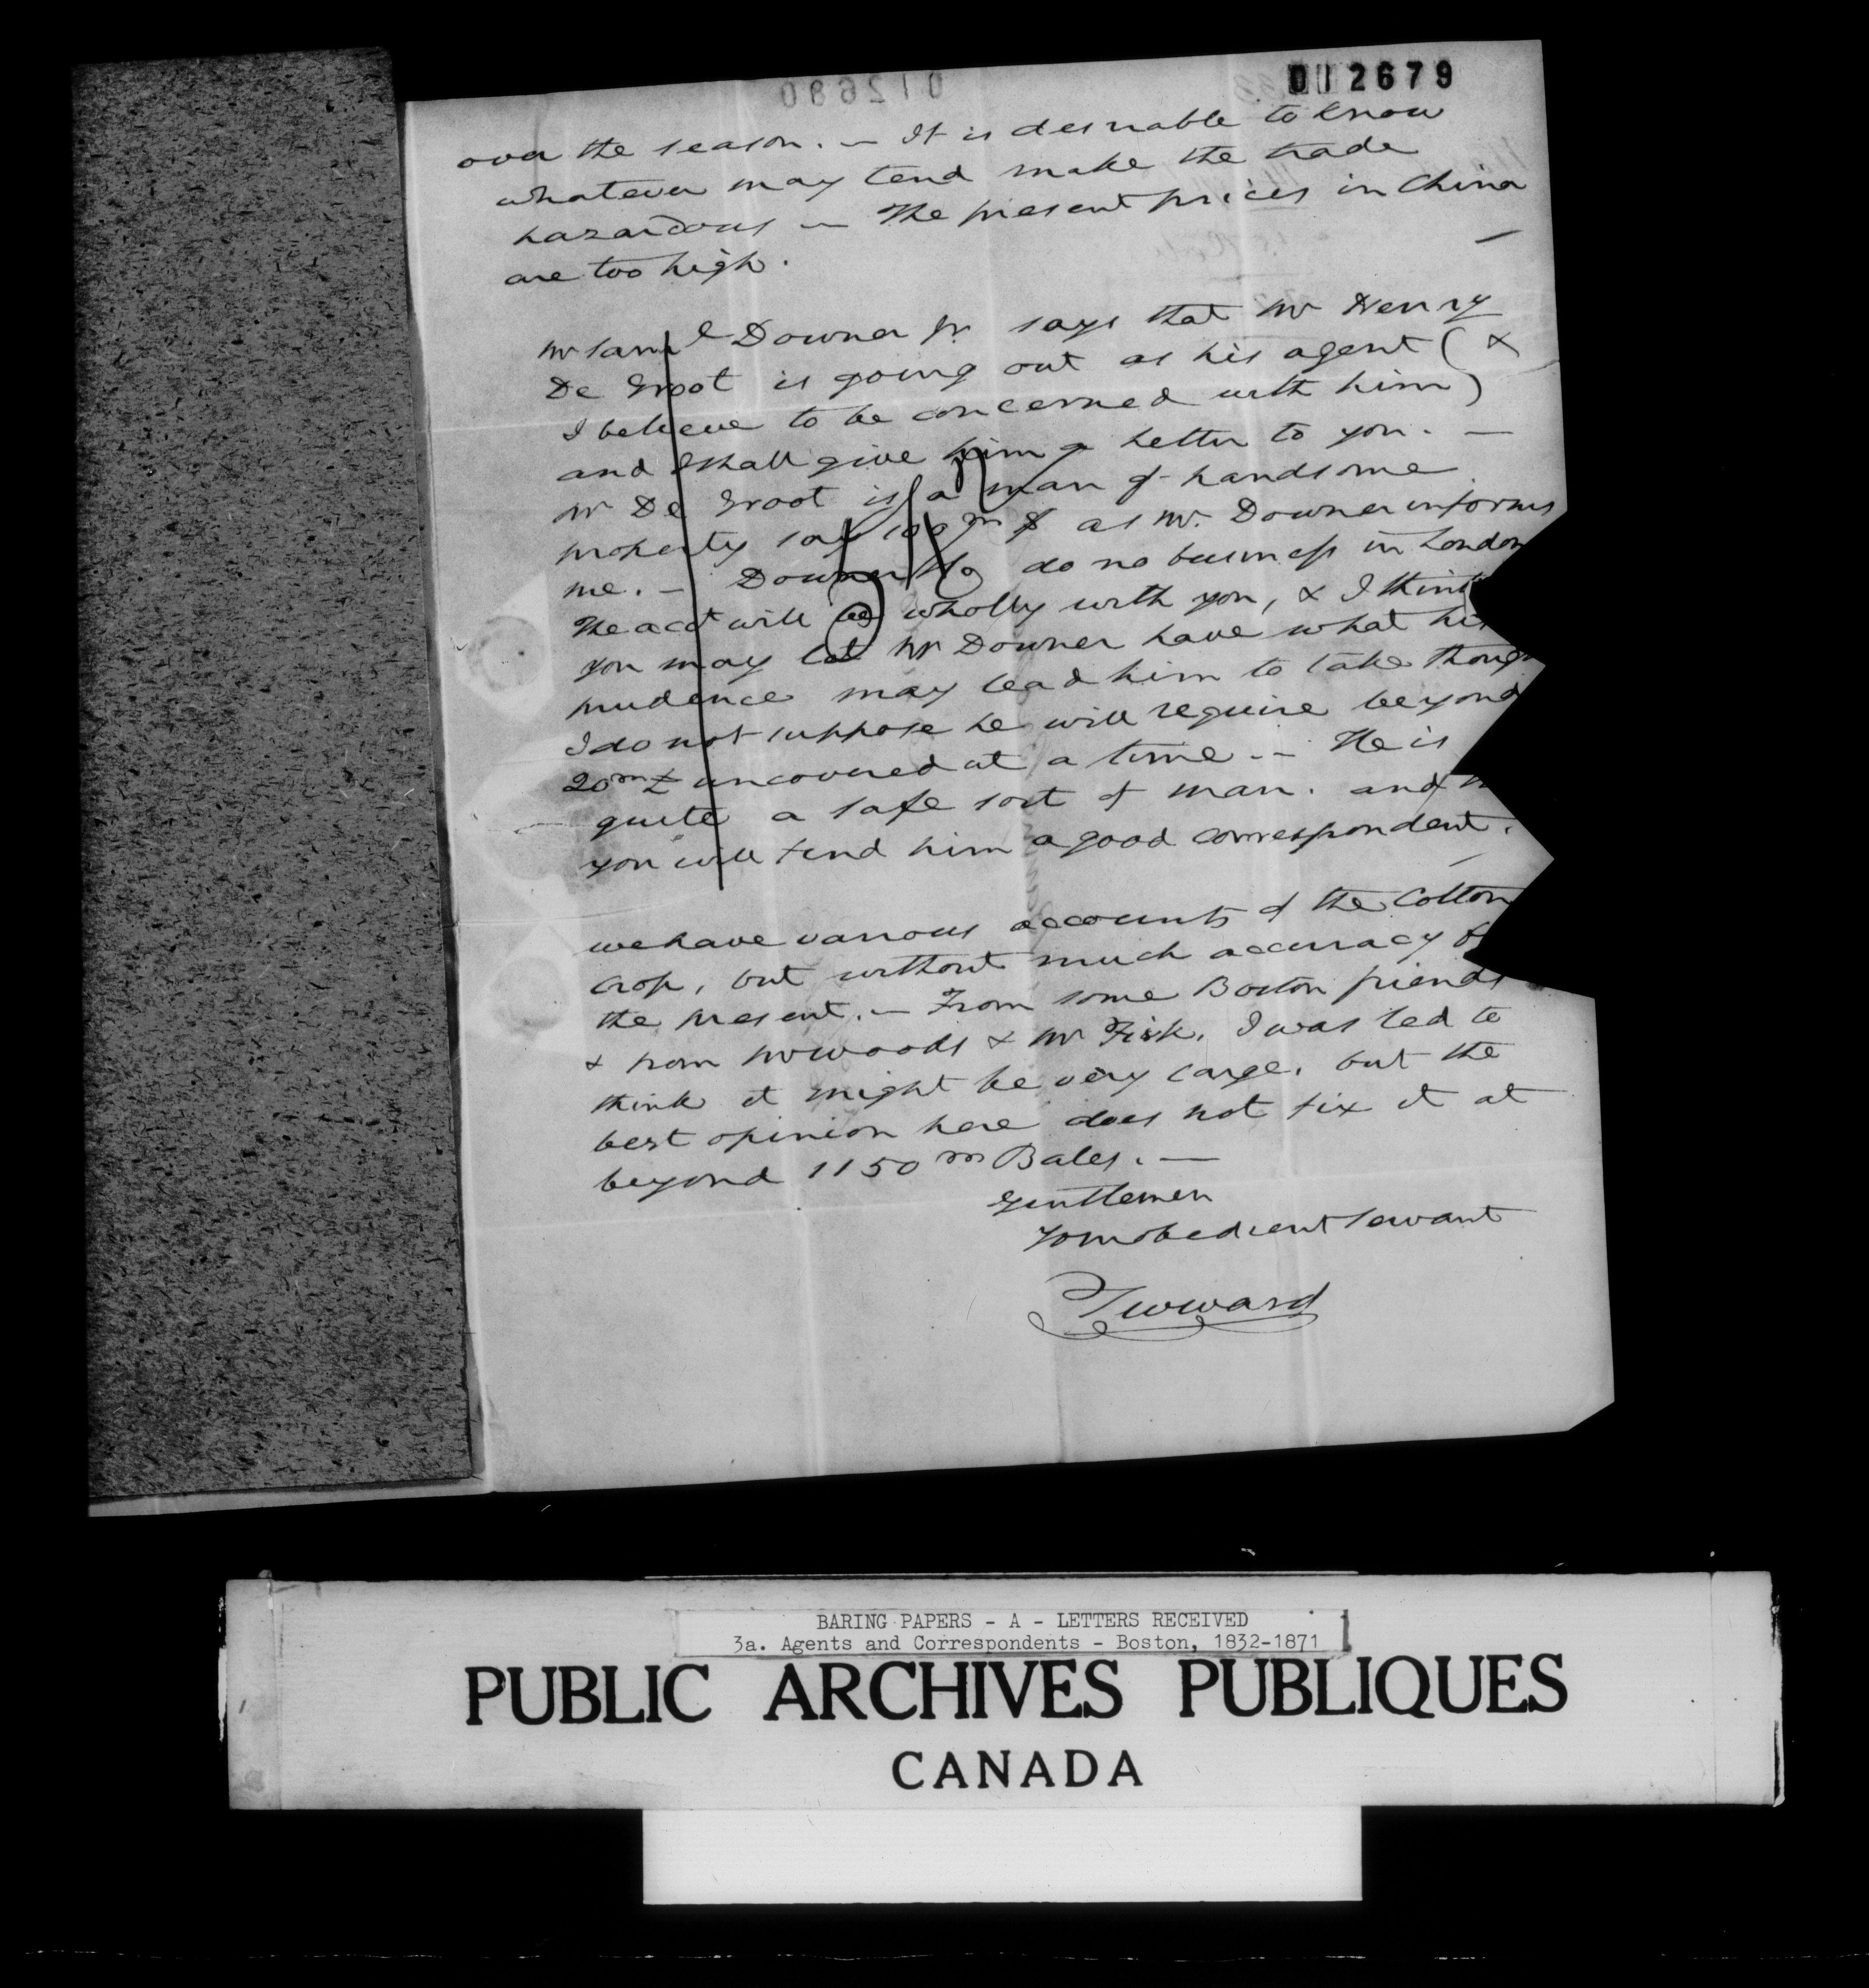 012679
over the season. – It is desirable to know
whatever may tend make the trade
hazardous – The present prices in China
are too high. –
Mr Saml Downer Jr. says that Mr Henry
De Groot is going out as his agent ( &
I believe to be concerned with him )
and I shall give him a letter to you. –
Mr De Groot is a man of handsome
property say 100 m $ as Mr. Downer informs
me. – Downer & Co do no business in London
The acct will be wholly with you, & I think
you may let Mr Downer have what his
prudence may lead him to take though
I do not suppose he will require beyond
20 m £ uncovered at a time. – He is
quite a safe sort of man. and
you will find him a good correspondent. –
we have various accounts of the Cotton
crop, but without much accuracy
the present. – From some Boston friends
& from Mr Woods & Mr Fisk, I was led to
think it might be very large, but the
best opinion here does not fix it at
beyond 1150 m Bales. –
Gentlemen
Your obedient Servant
TWWard
BARING PAPERS - A - LETTERS RECEIVED
3a. Agents and Correspondents - Boston, 1832-1871
PUBLIC ARCHIVES PUBLIQUES
CANADA